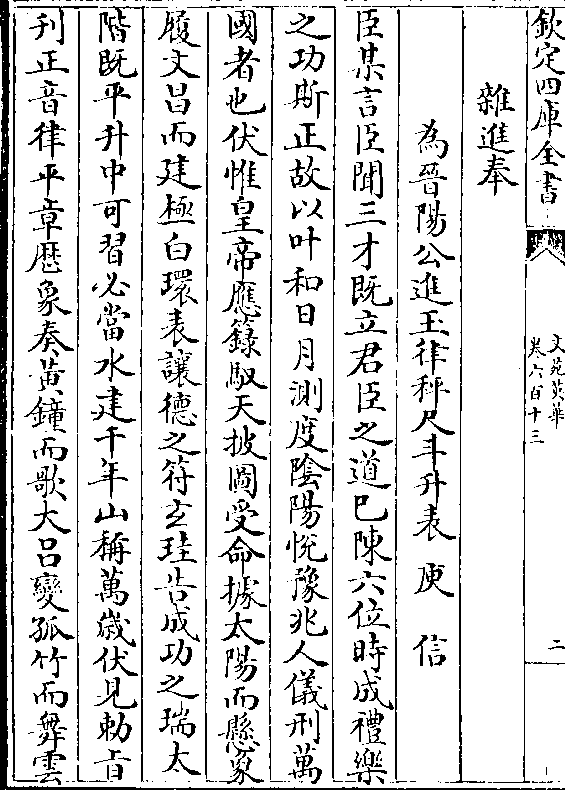 欽定四庫全書
文苑英華
卷六百十三
二
雜進奉
為晉陽公進玉律秤尺斗升表庾信
臣某言臣聞三才既立君臣之道已陳六位時成禮樂
之功斯正故以叶和日月測度陰陽悅豫兆人儀刑萬
國者也伏惟皇帝應籙馭天披圖受命據太陽而懸象
履文昌而建極白環表讓德之符玄珪告成功之瑞太
階既平升中可習必當水建千年山稱萬歲伏見勅旨
刋正音律平章歴象奏黃鐘而歌大呂變孤竹而舞雲